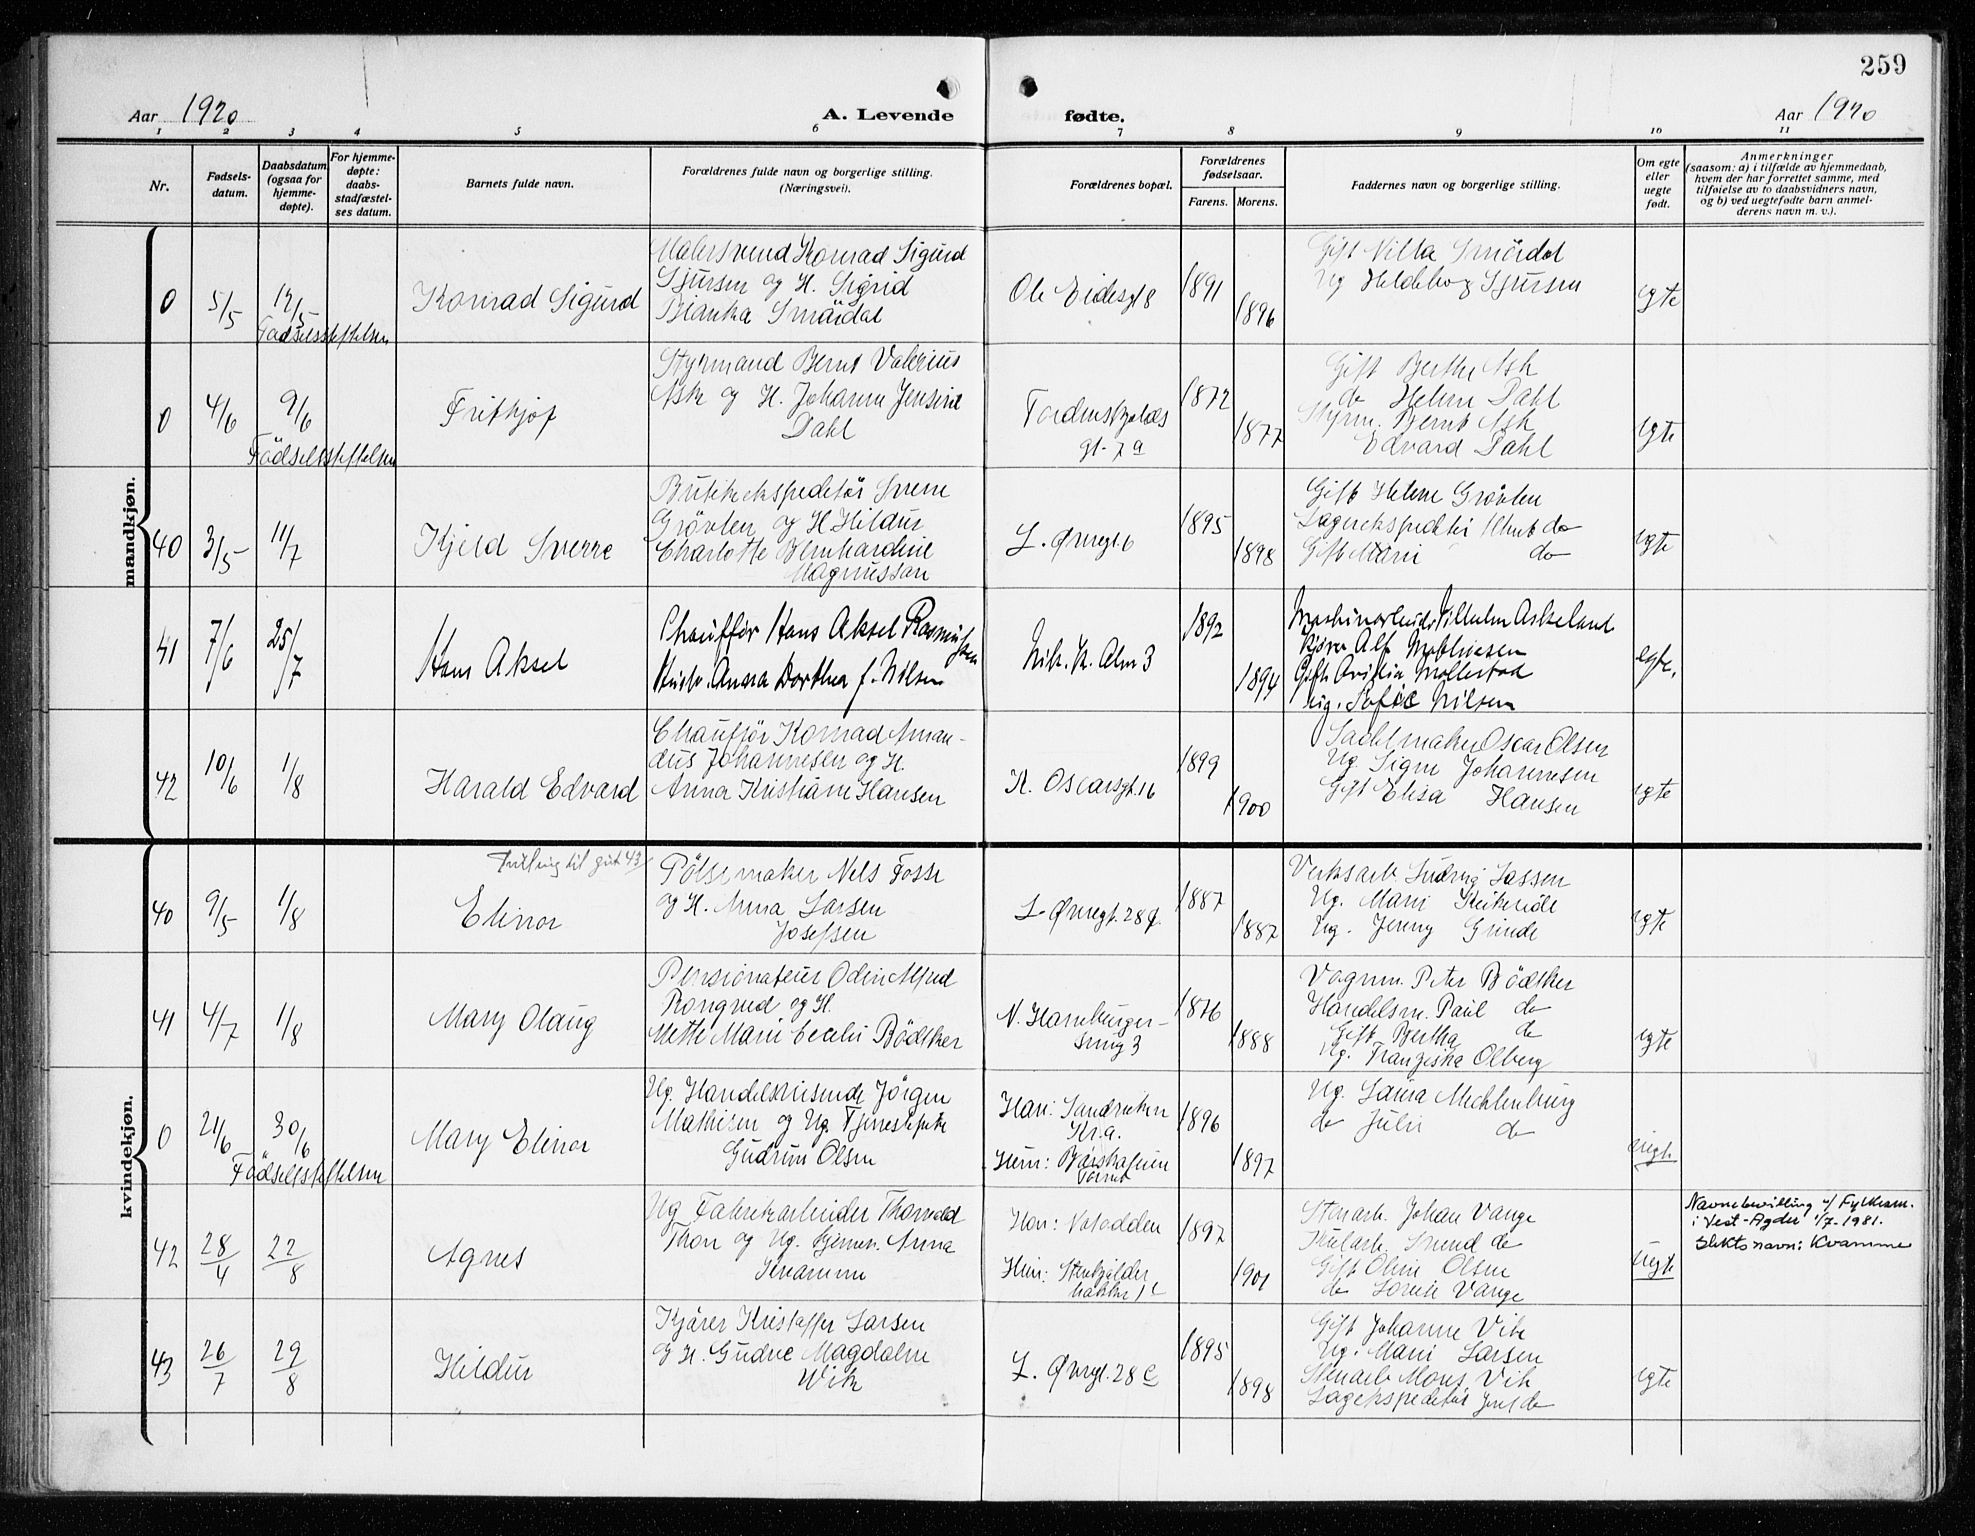 259
Aar 1920
A. Levende
fødte.
Aar 1920
1 2 3 4 5 6 7 8 9 10 11
Nr.
Fødsels-
datum.
Daabsdatum
(ogsaa for
hjemme-
døpte).
For hjemme-
døpte:
daabs-
stadfæstel-
ses datum.
Barnets fulde navn.
Forældrenes fulde navn og borgerlige stilling.
(Næringsvei).
Forældrenes bopæl.
Forældrenes
fødselsaar.
Farens. Morens.
Faddernes navn og borgerlige stilling.
Om egte
eller
uegte
født.
Anmerkninger
(saasom: a) i tilfælde av hjemmedaab,
hvem der har forrettet samme, med
tilføielse av to daabsvidners navn,
og b) ved uegtefødte barn anmel-
derens navn m. v.).
mandkjøn.
0 5/5 12/5
Fødselsstiftelsen
Konrad Sigurd
Malersvend Konrad Sigurd
Sjursen og H. Sigrid
Bianka Smørdal
Ole Eidesgt 8
1891
1896
Gift Smørdal
Ug Sjursen
egte
0 4/6 9/6
Fødselsstiftelsen
Fritkjof
Styrmand Bernt Valerius
Ask og H. Johanna Jensine
Dahl
Tordenskjolds
gt. 7 a
1872
1877
Gift Berthe Ask
do Helene Dahl
Styrm. Bernt Ask
Edvard Dahl
egte
40 3/5 11/7
Kjeld Sverre
Butikekspeditør Sverre
Grøvlen og H. Hildur
Charlotte Bernhardine
Magnussen
L. Øvregt. 6
1895
1898
Gift Helene Grøvlen
Lagerekspeditør Knut do
Gift Marie do
egte
41 7/6 25/7
Hans Aksel
Chauffør Hans Aksel Rasmussen
Hustr. Anna Dorthea f. Nilsen
Nik. K. Alm 3
1892
1894
Maskinarbeider Vilhelm Askeland
Alf Mathiesen
Gift Mollestad
ug. Sofie Nilsen
egte.
42 10/6 1/8
Harald Edvard
Chauffør Konrad Aman-
dus Johannesen og H.
Anna Kristiane Hansen
K. Oscarsgt. 16
1899
1900
Sadelmaker Oscar Olsen
Ug. Signe Johannesen
Gift Elisa Hansen
egte
kvindekjøn.
40 9/5 1/8
Tvilling til gut 43
Elinor
Pølsemaker Nels Fosse
og H. Anna Larsen
Josefsen
L. Øvregt. 28
1887
1887
Verksarb Ludvig Lassen
Ug. Marie
Ug. Jenny Grinde
egte
41 4/7 1/8
Mary Olaug
Pensionateier Odin Alfred
Rongved og H.
Mette Marie Cecelie Bödtker
N. Hamburger-
smug 3
1876
1888
Vognm. Peter Bödtker
Handelsm. Paul do
Gift Bertha do
Ug. Franziska Olberg
egte
0 21/6 30/6
Fødselsstiftelsen
Mary Elinor
Ug. Handelsreisende Jörgen
Mathisen og Ug. Tjenestepike
Gudrun Olsen
Han: Sandviken
Kr.a.
Hun:
1896
1897
Ug. Laura Mechlenburg
do Julie do
uegte
42 28/4 22/8
Agnes
Ug Fabrikarbeider Thorvald
Thon og Ug. Anna
Kvamme
Han: Notodden
Hun: Stenkjelder
bakken 1 c
1897
1901
Stenarb. Johan Vange
Svend do
Gift Oline Olsen
do Vange
uegte
Navnebevilling v/ Fylkesm.
i Vest-Agder 1/7-1981.
Slektsnavn: Kvamme
43 26/7 29/8
Hildur
Kjører Kristoffer Larsen
og H. Gudve Magdalene
Wik
L. Øvregt. 28 c
1895
1898
Gift Johanne Vik
Ug. Marie Larsen
Stenarb Mons Vik
Lagerekspeditør do
egte